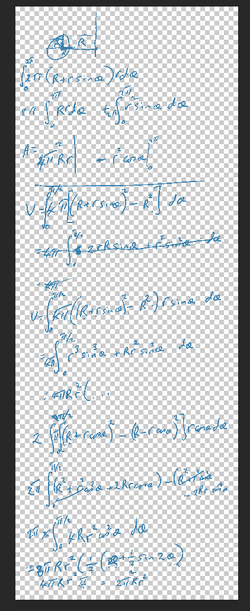 R
∫₀^2π 2π(R+r sinα) r dα
2π ∫₀^2π Rr dα + ∫₀^2π r² sinα dα
A = 4π²Rr | - r² cosα |₀^2π
V = ∫₀^π/2 4π[(R+r sinα)² - R²] dα
= 4π ∫₀ 2rR sinα + r² sin²α dα
= 4π
V = ∫₀^π/2 4π((R+r sinα)² - R²) r sinα dα
= 4π ∫₀^π/2 r³ sin³α + Rr² sin²α dα
= 4πRr² ( ...
2 ∫ π[(R+r cosα)² - (R-r cosα)²] r cosα dα
2π ∫₀^π/2 (R² + r² cos²α + 2Rr cosα) - (R² + r² cos²α - 2Rr cosα)
2π × ∫₀ 4Rr² cos²α dα
= 8πRr² (½(α + ½ sin 2α)
4πRr² π/2 2π²Rr²